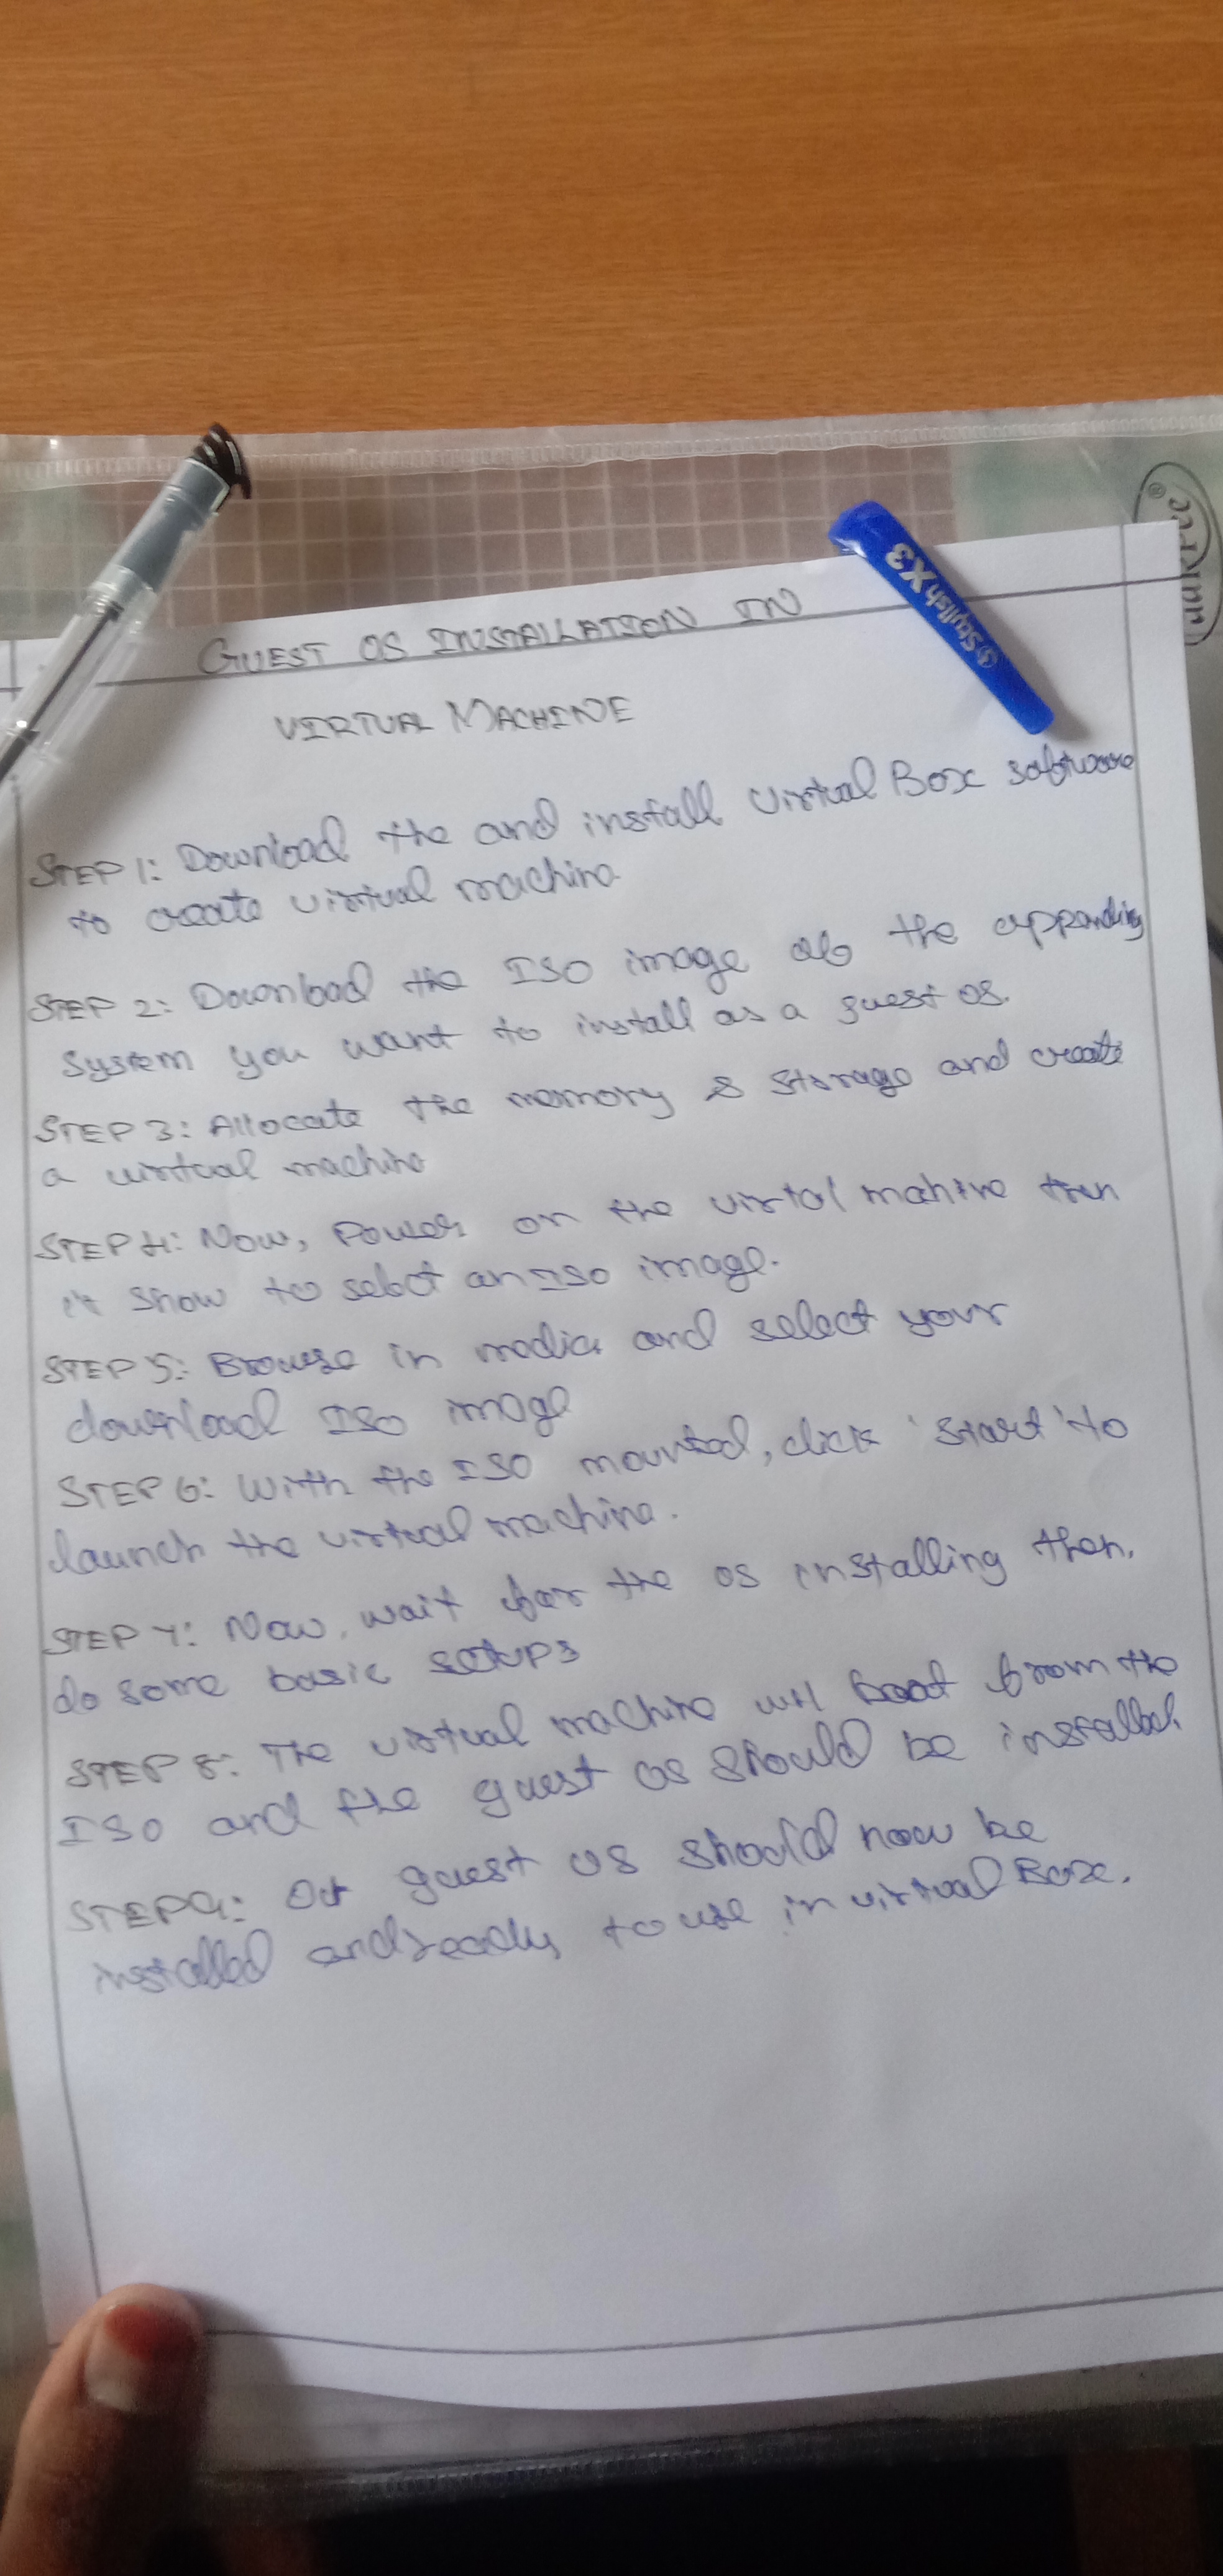 GUEST OS INSTALLATION IN
VIRTUAL MACHINE
STEP 1: Download the and install Virtual Box software
to create virtual machine
STEP 2: Download the ISO image of the
system you want to install as a guest OS.
STEP 3: Allocate the memory & storage and create
a virtual machine
STEP 4: Now, Power on the virtal mahine then
it show to select an ISO image.
STEP 5: Browse in media and select your
download ISO image
STEP 6: With the ISO mounted, click 'Start' to
launch the virtual machine.
STEP 7: Now, wait for the os installing then,
do some basic setups
STEP 8: The virtual machine will boot from the
ISO and the guest os should be installed.
STEP 9: guest os should now be
installed and ready to use in virtual Box.
Stylish X3